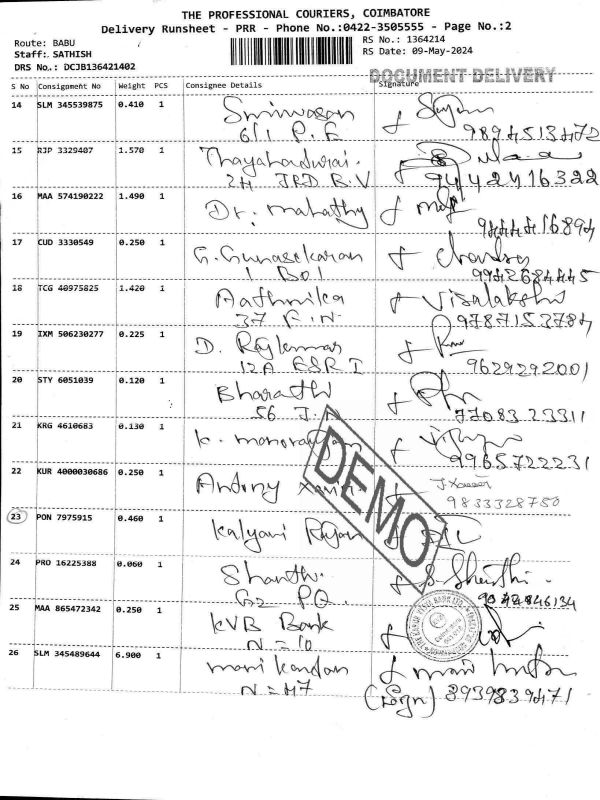 THE PROFESSIONAL COURIERS, COIMBATORE
Delivery Runsheet - PRR - Phone No.:0422-3505555 - Page No.:2
Route: BABU
Staff: SATHISH
DRS No.: DCJB136421402
RS No.: 1364214
RS Date: 09-May-2024
DOCUMENT DELIVERY
S No Consignment No Weight PCS Consignee Details Signature
14 SLM 345539875 0.410 1 Srinivasan
6/1 P.E
9894513472
15 RJP 3329407 1.570 1
24 JRD B.V 9442416322
16 MAA 574190222 1.490 1 Dr. Mahathy
9444416894
17 CUD 3330549 0.250 1 G. Gunasekaran Chandra
1 BOI 9942684445
18 TCG 40975825 1.420 1 Aathmika Visalakshi
37 F.N. 9787153784
19 IXM 506230277 0.225 1 D. Rajkumar
12A ESR I 9629292001
20 STY 6051039 0.120 1 Bharathi
56 7708323311
21 KRG 4610683 0.130 1 K. Manoranjan
9965722231
22 KUR 4000030686 0.250 1 Antony Xavier J Xavier
9833328750
DEMO
23 PON 7975915 0.460 1 Kalyani Rajan
24 PRO 16225388 0.060 1 Shanthi S. Shanthi
G2 PQ.
25 MAA 865472342 0.250 1 KVB Bank
N = 10
26 SLM 345489644 6.900 1 Manikandan
N = 47 (Sign) 3939839471